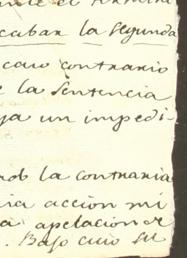 cabar la segunda
caso contrario
e la sentencia
ya un impedi-
la contraria
ia accion mi
a apelacion
. Bajo cuio su